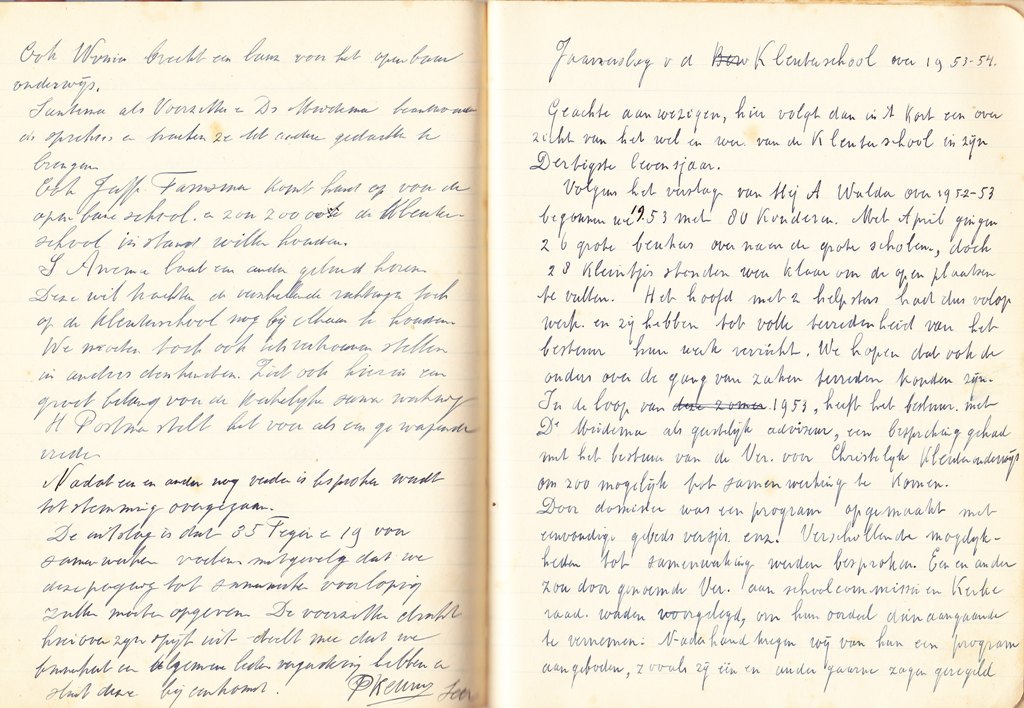 Ook Wonia breekt een lans voor het openbaar
onderwijs.
Santema als Voorzitter en Ds Miedema beantwoorden
de sprekers en trachten ze tot andere gedachte te
brengen
Ook Juffr. Famsma komt hard op voor de
openbare school. en zou zoo ook de Kleuter-
school in stand willen houden.
S Anema laat een ander geluid horen
Deze wil trachten de verschillende richtingen toch
op de Kleuterschool nog bij elkaar te houden.
We moeten toch ook iets vertrouwen stellen
in anders denkenden. Ziet ook hierin een
groot belang voor de Kerkelijke samenwerking
H Postma stelt het voor als een gewapende
vrede
Nadat een en ander nog verder is besproken wordt
tot stemming overgegaan.
De uitslag is dat 35 Tegen en 19 voor
samenwerken voelen. met gevolg dat we
deze poging tot samenwerken voorlopig
zullen moeten opgeven. De voorzitter drukt
hierover zijn spijt uit deelt mee dat we
binnenkort een algemene ledenvergadering hebben en
sluit deze bijeenkomst.
Jaarverslag v d Bew Kleuterschool over 1953-54.
Geachte aanwezigen, hier volgt dan in 't Kort een over
zicht van het wel en wee van de Kleuterschool in zijn
Dertigste levensjaar.
Volgens het verslag van Mej A Walda over 1952-53
begonnen we '19.53 met 80 Kinderen. Met April gingen
26 grote kleuters over naar de grote scholen, doch
28 Kleintjes stonden weer klaar om de open plaatsen
te vullen. Het hoofd met 2 helpsters had dus volop
werk. en zij hebben tot volle tevredenheid van het
bestuur hun werk verricht. We hopen dat ook de
ouders over de gang van zaken tevreden konden zijn.
In de loop van deze zomer 1953, heeft het bestuur. met
Ds Miedema als geestelijk adviseur, een bespreking gehad
met het bestuur van de Ver. voor Christelijk Kleuteronderwijs
om zoo mogelijk tot samenwerking te Komen.
Door dominee was een program opgemaakt met
eenvoudige gebeds versjes enz. Verschillende mogelijk-
heden tot samenwerking werden besproken. Een en ander
zou door genoemde Ver. aan schoolcommissie en Kerke
raad. worden voorgelegd, om hun oordeel dienaangaande
te vernemen. Naderhand kregen wij van hun een program
aangeboden, zooals zij een en ander gaarne zagen geregeld